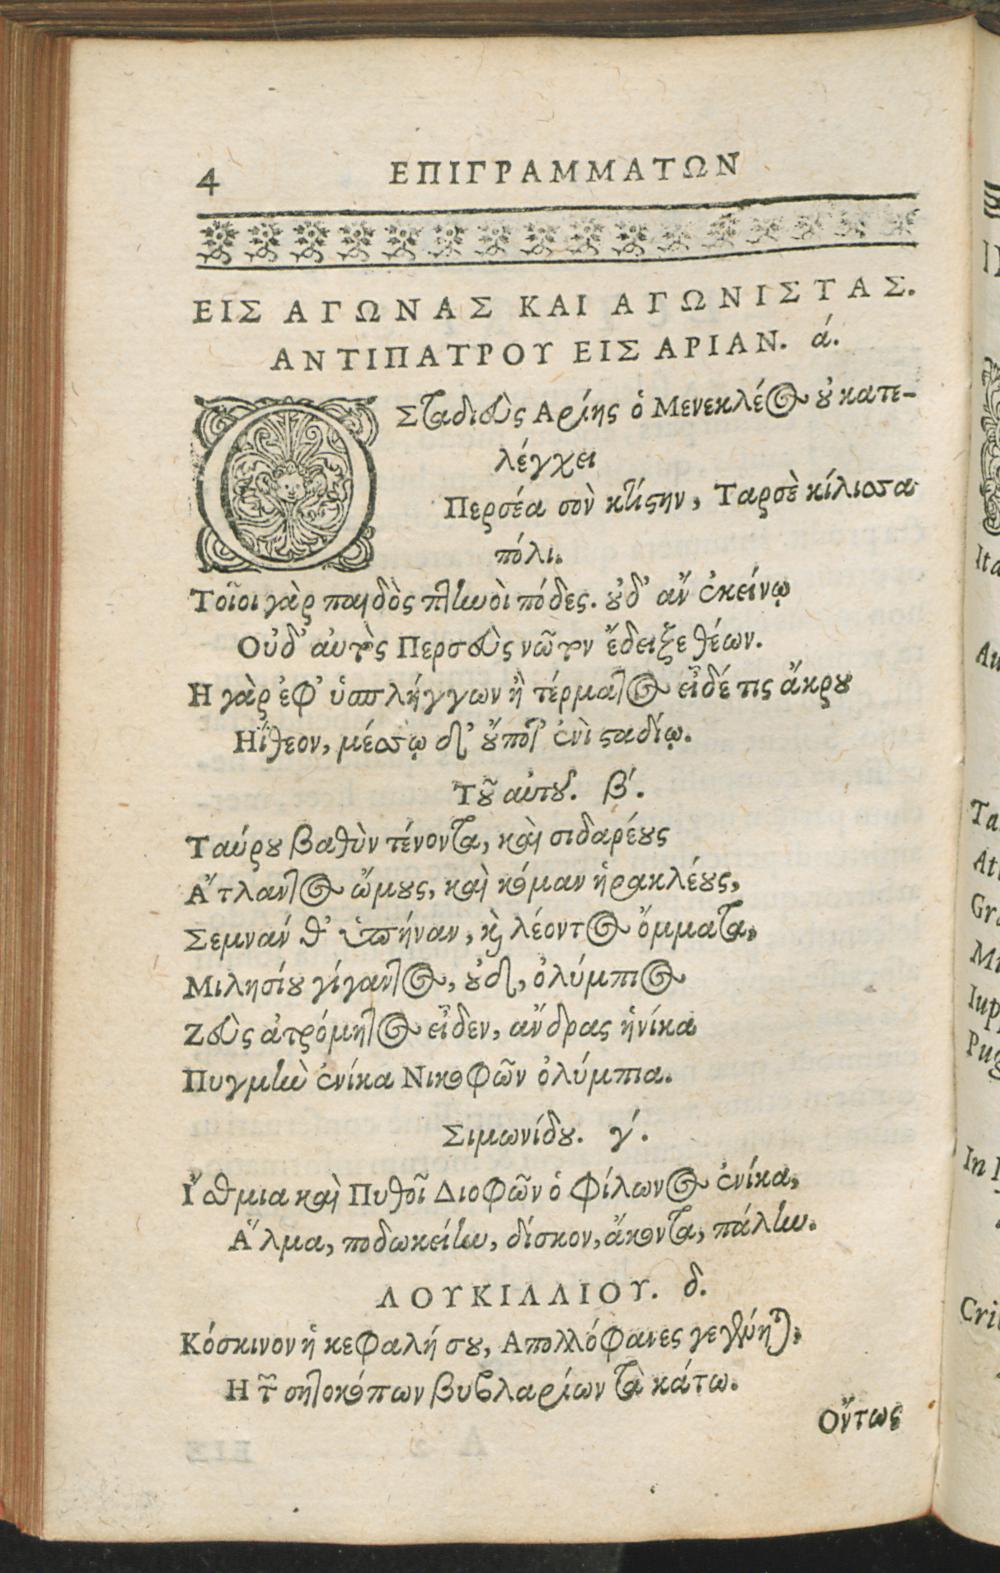 4 ΕΠΙΓΡΑΜΜΑΤΩΝ
ΕΙΣ ΑΓΩΝΑΣ ΚΑΙ ΑΓΩΝΙΣΤΑΣ.
ΑΝΤΙΠΑΤΡΟΥ ΕΙΣ ΑΡΙΑΝ. ά.
Ο Σταδιεὺς Αρίης ὁ Μενεκλέος οὐ κατε-
λέγχει
Περσέα σὸν κτίστην, Ταρσὲ κίλισσα
πόλι.
Τοῖοι γὰρ παιδὸς πτηνοὶ πόδες. οὐδ' ἂν ἐκείνῳ
Οὐδ' αὐτὸς Περσεὺς νῶτον ἔδειξε θέων.
Η γὰρ ἐφ' ὑσπλήγγων ἢ τέρματος εἶδέ τις ἄκρου
Ηΐθεον, μέσσῳ δ' οὔποτ' ἐνὶ σταδίῳ.
Τοῦ αὐτοῦ. β'.
Ταύρου βαθὺν τένοντα, καὶ σιδαρέους
Α῎τλαντος ὤμους, καὶ κόμαν ἡρακλέους,
Σεμνάν θ' ὑπήναν, καὶ λέοντος ὄμματα,
Μιλησίου γίγαντος, οὐδ', ὀλύμπιος
Ζεὺς ἀτρόμητος εἶδεν, ἄνδρας ἡνίκα
Πυγμὴν ἐνίκα Νικοφῶν ὀλύμπια.
Σιμωνίδου. γ'.
Ι῎σθμια καὶ Πυθοῖ Διοφῶν ὁ Φίλωνος ἐνίκα,
Α῞λμα, ποδωκείην, δίσκον, ἄκοντα, πάλην.
ΛΟΥΚΙΛΛΙΟΥ. δ.
Κόσκινον ἡ κεφαλή σου, Απολλόφανες γεγένηται,
Η τῶν σητοκόπων βυβλαρίων τὰ κάτω.
Οὔτως